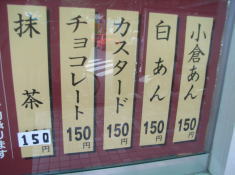 小倉あん 150円
白あん 150円
カスタード 150円
チョコレート 150円
抹茶 150円